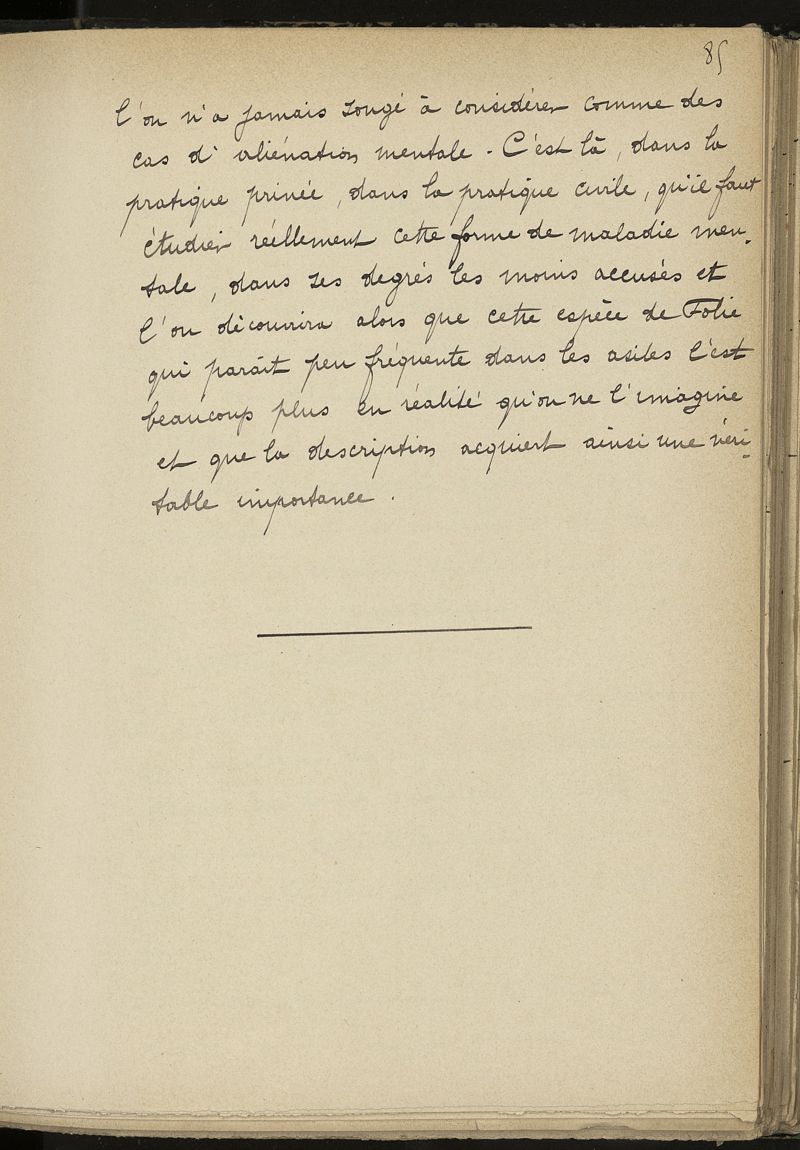 85
l'on n'a jamais songé à considérer comme des
cas d'aliénation mentale. C'est là, dans la
pratique privée, dans la pratique civile, qu'il faut
étudier réellement cette forme de maladie men-
tale, dans ses degrés les moins accusés et
l'on découvrira alors que cette espèce de Folie
qui paraît peu fréquente dans les asiles l'est
beaucoup plus en réalité qu'on ne l'imagine
et que la description acquiert ainsi une véri-
table importance.